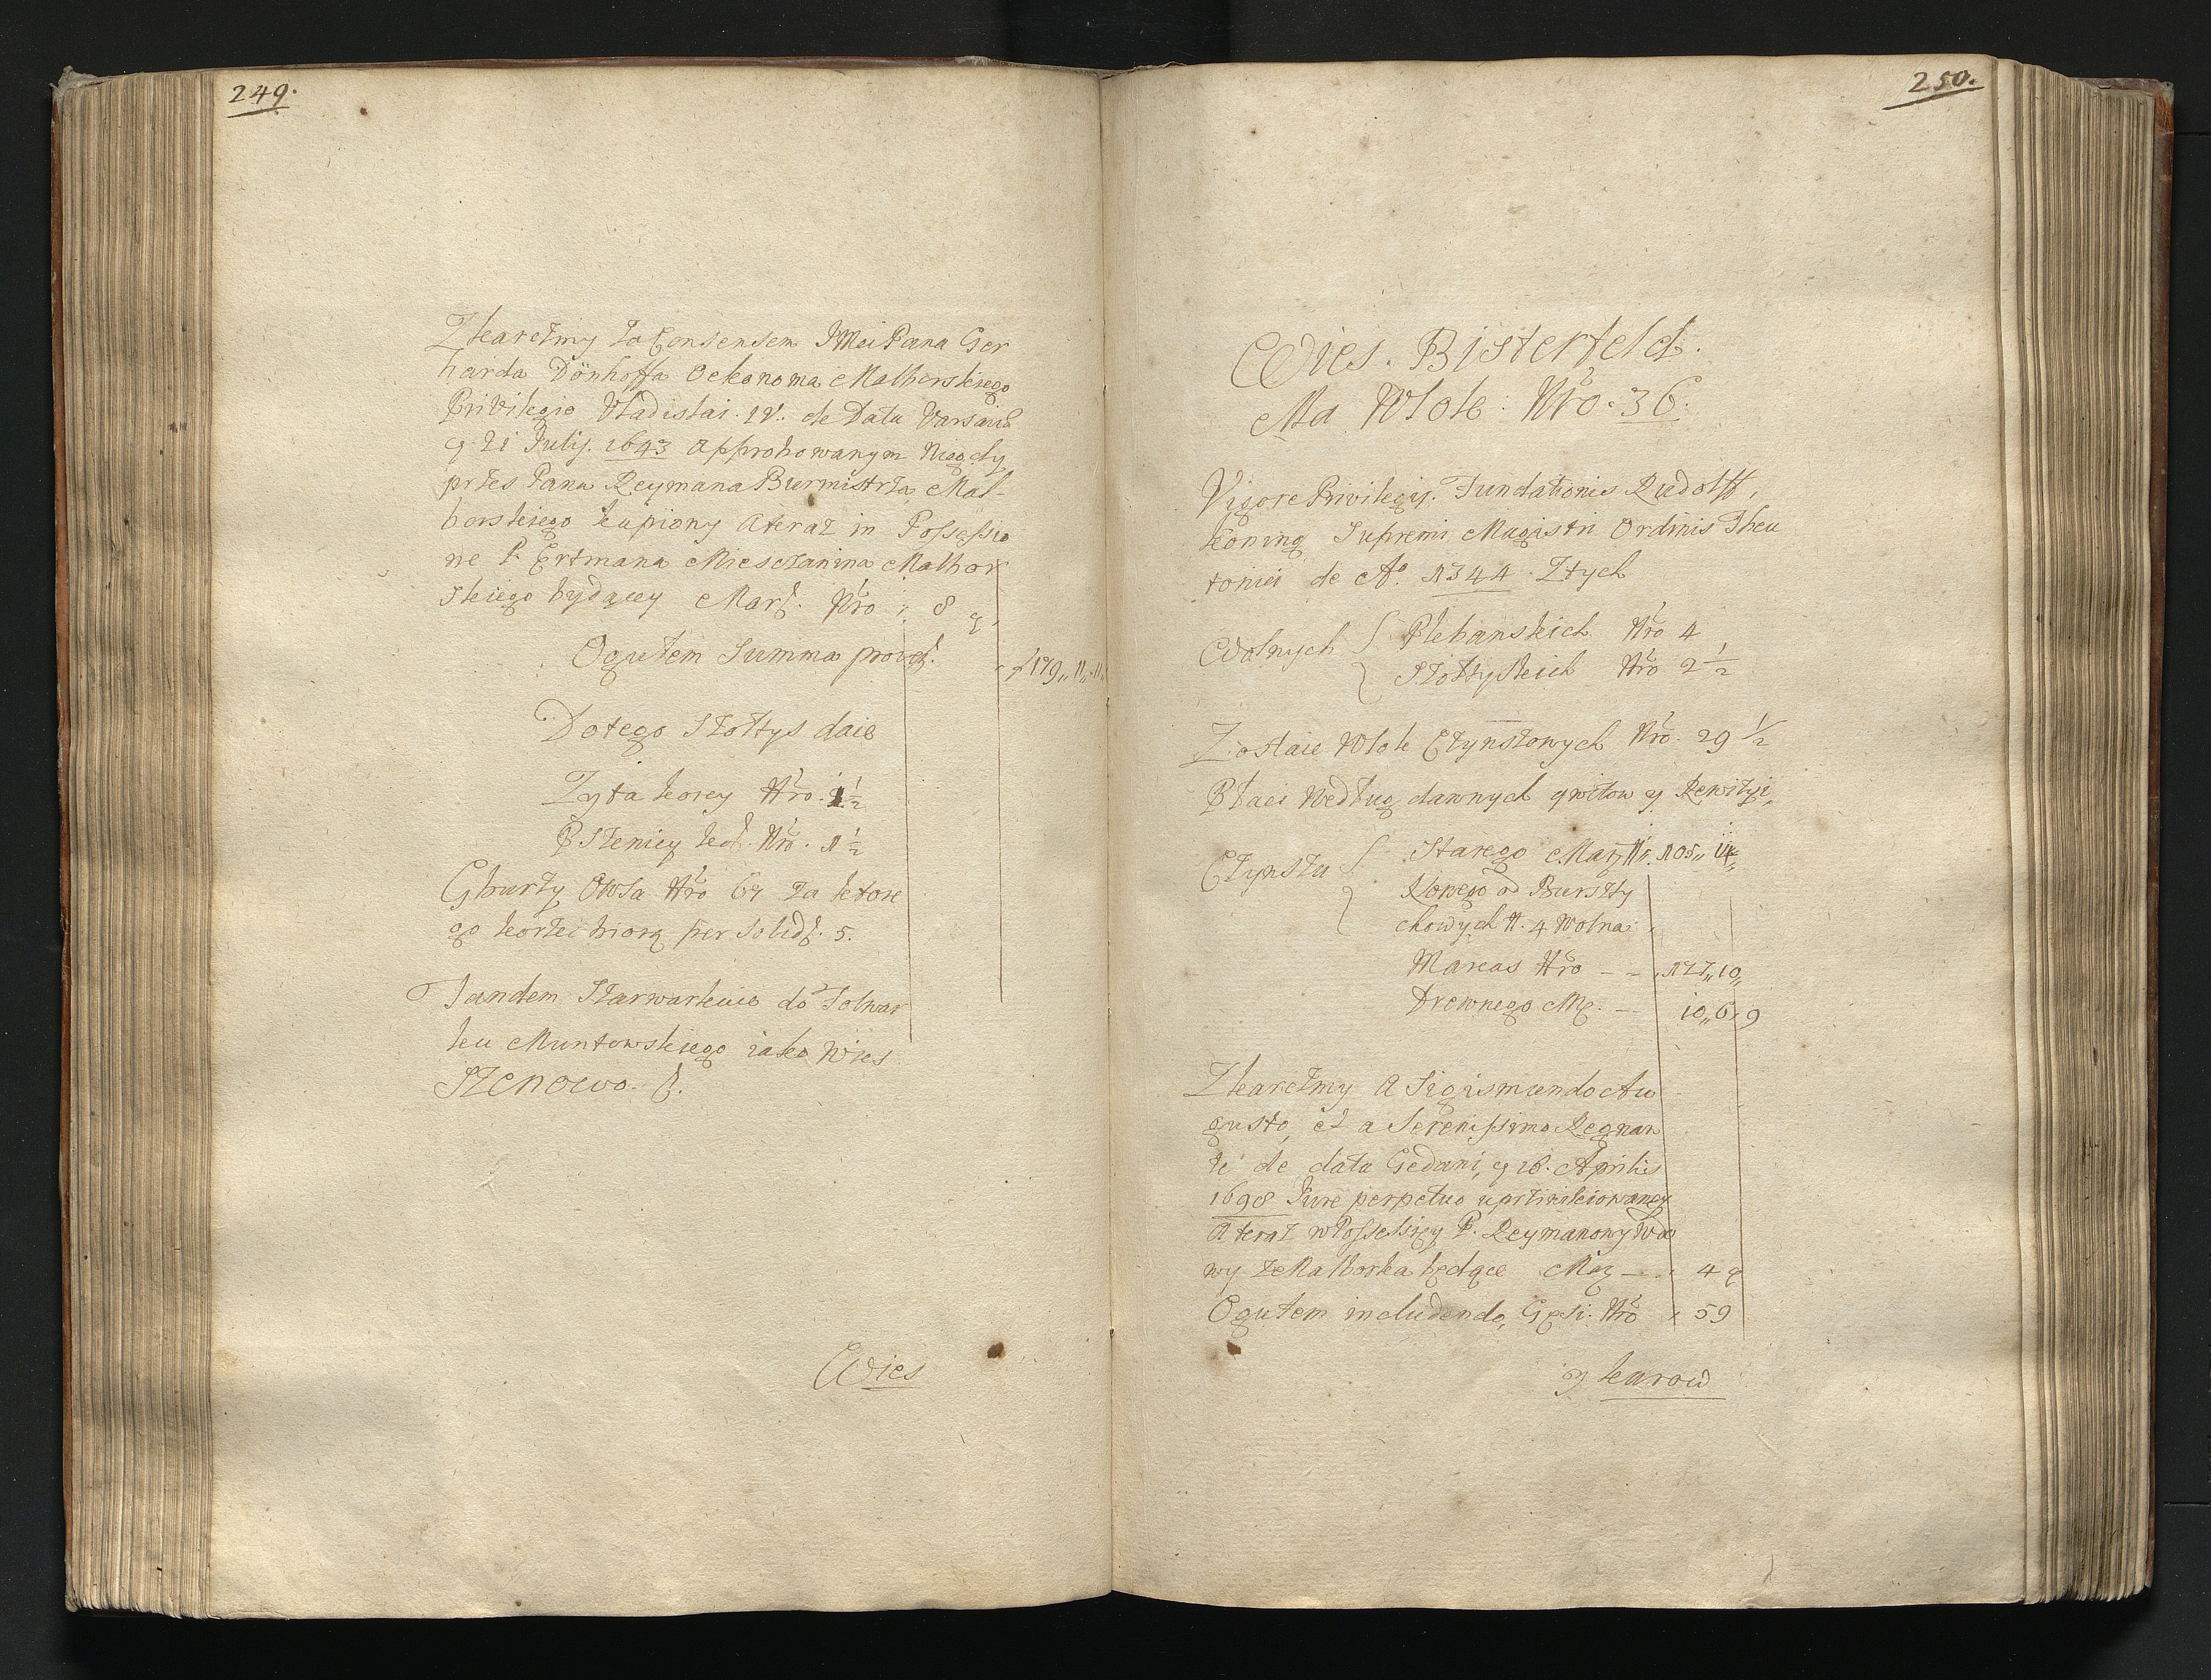 249.
Zkarczmy za Consensem JMci Pana Ger
harda Dönhoffa Oekonoma Malborskiego
Privilegio Vladislai. IV. de Data Varsaviæ
21 Julij. 1643 approbowanym Niegdy
przes Pana Reymana Burmistrza Mal-
borskiego kupiony a teraz in Possessio
ne P. Ertmana Miesczanina Malbor
skiego bydącey Març. Nro 8
Ogułem Summa provt. f 179,, 11,, 11,,
Do tego Szołtys daie
Zyta korcy Nro. 1 1/2
Pszenicy kor. Nro. 1 1/2
Gburzy Owsa Nro 67 za ktore
go korzec biorą per Solidf. 5.
Tandem Szarwarkuie do Folwar
ku Muntowskiego iako Wies
SZENOWO.
Wies
250.
Wies. Bisterfeld.
Ma Włok: Nro. 36.
Vigore Privilegij. Fundationis Rudolff,
Köning Supremi Magistri Ordinis Theu
tonici de Ao. 1344. Ztych
Wolnych { Plebanskich Nro 4
Szołtyskich Nro 2 1/2
Zostaie Włok Czynszowych Nro. 29 1/2
Płaci Według dawnych qwitow y Rewizyi,
Czynszu { Starego Març N. 105,, 14,,
Nowego od Burszty
chowych N. 4 Wolna:
Marcas Nro - - 177,, 10,,
Drewnego Mç. - - 10,, 6,, 9
Zkarczmy a Sigismundo Au
gusto, et a Serenissimo Regnan
te de data Gedani, 16. Aprilis
1698 Jure perpetuo uprziwileiowaney
a teraz w Possessiey P. Reymanowy Wdo
wy z Malborka będące Març - 4
Ogułem includendo, Gęsi. Nro 59
y kurow